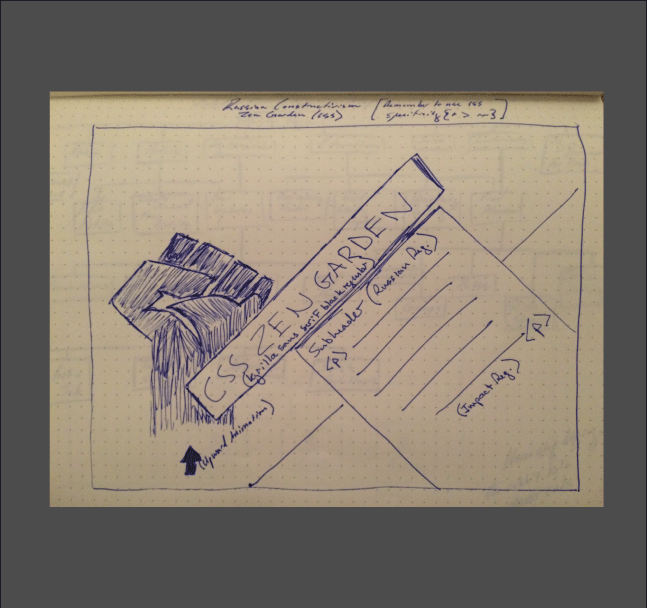 Russian Constructivism
Zen Garden (CSS)
[Remember to use CSS
specificity {* > }]
CSS ZEN GARDEN
(Kyrilla sans serif black regular)
Subheader (Russian Reg.)
<P>
<P>
(Impact Reg.)
(Upward Animation)